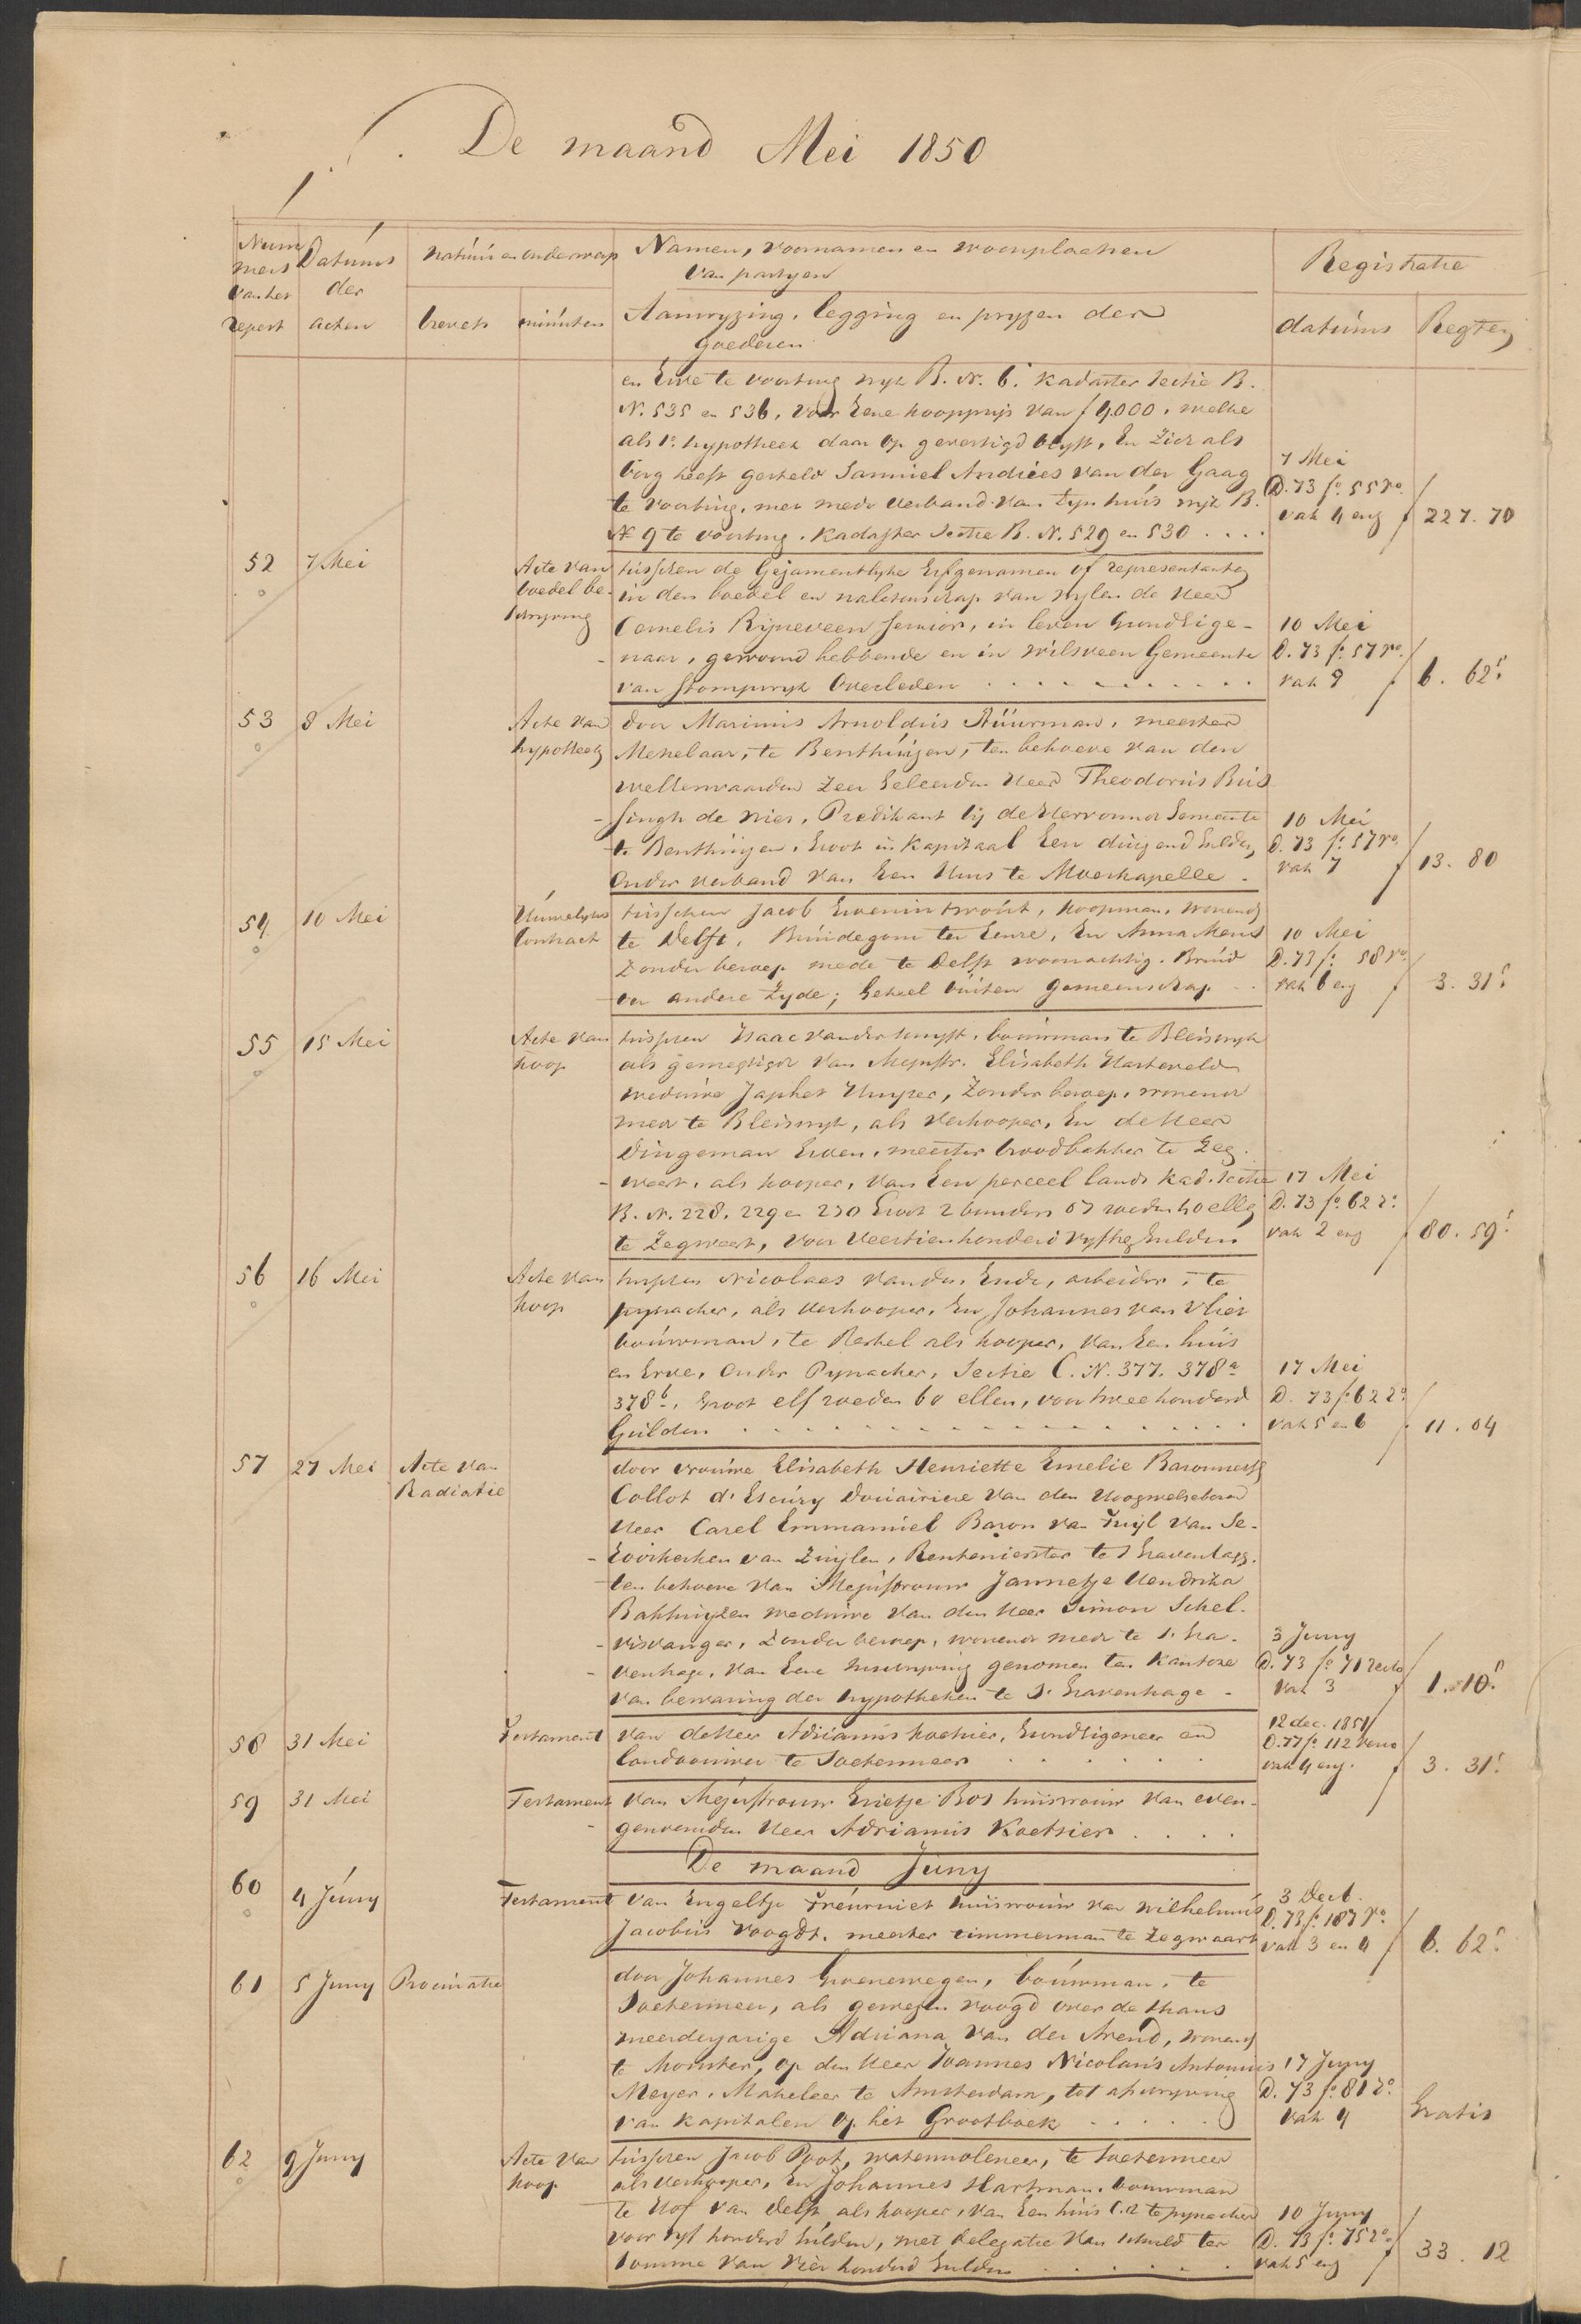 De maand Mei 1850
Num
mers
van het
repert
Datums
der
acten
natuur en onderwerp
brevets
minuten
Namen, voornamen en woonplaatsen
van partyen
Aanwyzing, legging en pryzen der
goederen
Registratie
datums
Regten
en Erve te voorburg wyk B. N. 6. kadaster sectie B.
N. 535 en 536, voor Eene koopprijs van f 4000, welke
als 1e hypotheek daar op gevestigd blyft, En zich als
borg heeft gesteld Samuel Andries van der Gaag
te voorburg, met mede verband van zyn huis wyk B.
N 9 te voorburg. Kadaster Sectie B. N. 529 en 530 . . . .
7 Mei
D. 73 fo. 55 vo.
vak 4 env
f 227. 70
52
7 Mei
Acte van
boedel be-
schryving
tusschen de Gezamentlyke Erfgenamen of representanten
in den boedel en nalatenschap van wylen de Heer
Cornelis Rijneveen senior, in leven Grondeige-
naar, gewoond hebbende en in Wilsveen Gemeente
van Stompwyk Overleden . . . . . . . . . .
10 Mei
D. 73 fo. 57 vo.
vak 9
f 6. 62⁵
53
8 Mei
Acte van
hypotheek
door Marinus Arnoldus Stuurman, meester
Metselaar, te Benthuizen, ten behoeve van den
weleerwaarden Zeer Geleerden Heer Theodorus Bus
singh de Vries, Predikant bij de Hervormde Gemeente
te Benthuizen, Groot in kapitaal Een duizend Gulden,
Onder verband van Een Huis te Moerkapelle .
10 Mei
D. 73 fo. 57 vo.
vak 7
f 13. 80
54
10 Mei
Huwelyks
Contract
tusschen Jacob hoopman, wonend
te Delft, Bruidegom ter Eenre, En Anna
Zonder beroep mede te Delft woonachtig. Bruid
ter andere Zyde; Geheel buiten gemeenschap . .
10 Mei
D. 73 fo. 58 vo.
vak 6 env
f 3. 31⁵
55
15 Mei
Acte van
koop
tusschen Izaac van der bouwman te Bleiswyk
als gemagtigde van Mejufvr. Elisabeth Hasteveld
weduwe Japhet Kuyper, Zonder beroep, wonende
mede te Bleiswyk, als Verkooper, En de Heer
Dingeman Erven, meester broodbakker te Zeg-
waart, als kooper, van Een perceel lands kad. sectie
B. N. 228. 229 en 230 Groot 2 bunders 07 roeden 40 ellen
te Zegwaart, voor Veertienhonderd vyftig Gulden
17 Mei
D. 73 fo. 62 ro.
vak 2 env
f 80. 59⁵
56
16 Mei
Acte van
koop
tusschen Nicolaas van der Ende, arbeider, te
pynacker, als verkooper, En Johannes van Vliet
bouwman, te Berkel als kooper, van Een huis
en Erve, Onder Pynacker, Sectie C. N. 377. 378a
378b, Groot elf roeden 60 ellen, voor twee honderd
Gulden . . . . . . . . . . . . . . . .
17 Mei
D. 73 fo. 62 ro.
vak 5 en 6
f 11. 04
57
27 Mei
Acte van
Radiatie
door vrouwe Elisabeth Henriette Emelie Baronnesse
Collot d'Escury Douairiere van den Hoogwelgeboren
Heer Carel Emmanuel Baron van Tuijl van Se-
rooskerken van Zuijlen, Rentenierster te s Gravenhage.
ten behoeve van Mejufvrouw Jannetje Hendrika
Bakhuyzen weduwe van den Heer Simon Schel-
visvanger, Zonder beroep, wonende mede te s. Gra-
venhage, van Eene inschryving genomen ten kantore
van bewaring der hypotheken te s' Gravenhage .
3 Juny
D. 73 fo 71 recto
vak 3
f 1. 10⁵
58
31 Mei
Testament
van de Heer Adrianus koetsier, Grondeigenaar en
landbouwer te Soetermeer . . . . . . .
12 dec. 1851
D. 77 fo 112 verso
vak 4 env.
f 3. 31⁵
59
31 Mei
Testament
van Mejufvrouw Grietje Bos huisvrouw van even-
genoemden Heer Adrianus Koetsier . . . .
De maand Juny
60
4 Juny
Testament
van Engeltje Treurniet huisvrouw van Wilhelmus
Jacobus Voogdt, meester timmerman te Zegwaart
3 Dect.
D. 73 fo. 187 vo.
vak 3 en 4
f 6. 62⁵
61
5 Juny
Procuratie
door Johannes Groenewegen, bouwman, te
Soetermeer, als gewezen voogd over de thans
meerderjarige Adriana van der Arend, wonend
te Monster, op den Heer Joannes Nicolaus Antonius
Meyer, Makelaar te Amsterdam, tot afschryving
van kapitalen Op het Grootboek . . . . .
17 Juny
D. 73 fo. 81 ro.
vak 4
Gratis
62
9 Juny
Acte van
koop
tusschen Jacob Poot, watermolenaar, te Soetermeer
als verkooper, En Johannes Hartman, bouwman
te Hof van Delft, als kooper, van Een huis te pynacker
voor vyf honderd Gulden, met delegatie van schuld ter
somme van vier honderd Gulden . . . . . .
10 Juny
D. 73 fo. 75 ro.
vak 5 env
f 33. 12